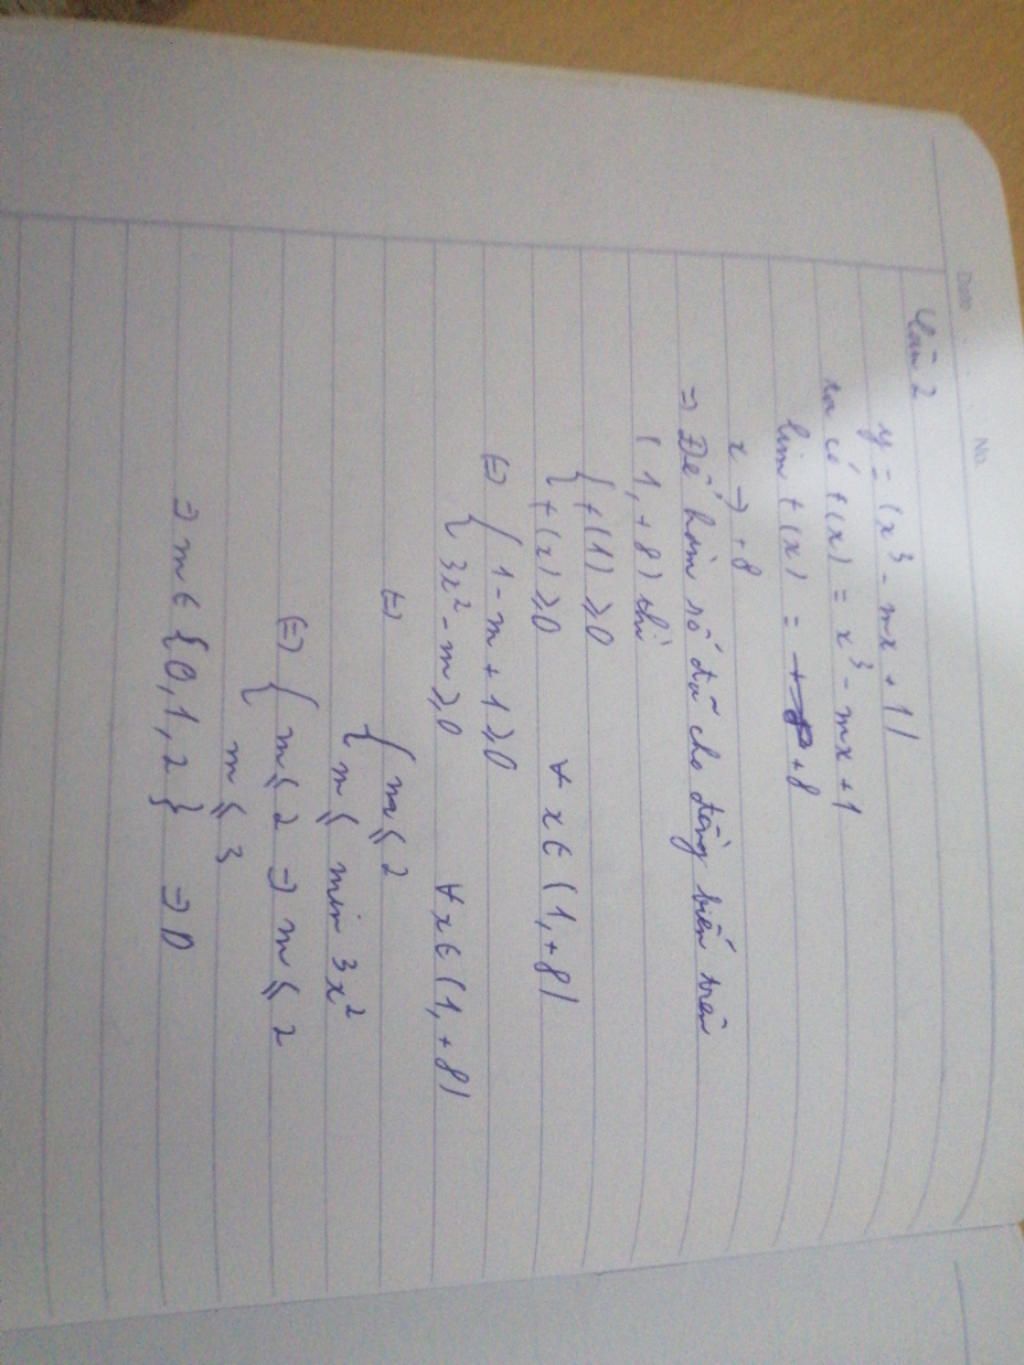 No.
Date
Câu 2
y = |x³ - mx + 1|
ta có f(x) = x³ - mx + 1
lim f(x) = +8
x → +8
⇒ Để hàm số đã cho đồng biến trên
(1, +8) thì
{ f(1) ≥ 0
{ f(x) ≥ 0 ∀ x ∈ (1, +8)
⇔ { 1 - m + 1 ≥ 0
{ 3x² - m ≥ 0 ∀ x ∈ (1, +8)
⇔ { m ≤ 2
{ m ≤ min 3x²
⇔ { m ≤ 2 ⇒ m ≤ 2
{ m ≤ 3
⇒ m ∈ {0, 1, 2} ⇒ D